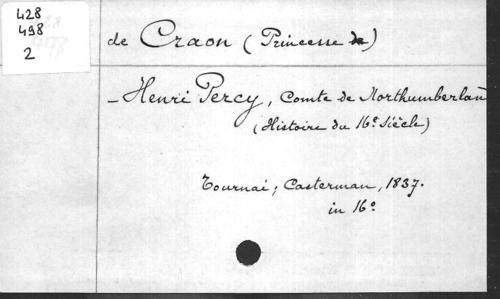 428
498
2
de Craon (Princesse de)
- Henri Percy, Comte de Northumberland
(Histoire du 16e Siècle)
Tournai; Casterman, 1837.
in 16º